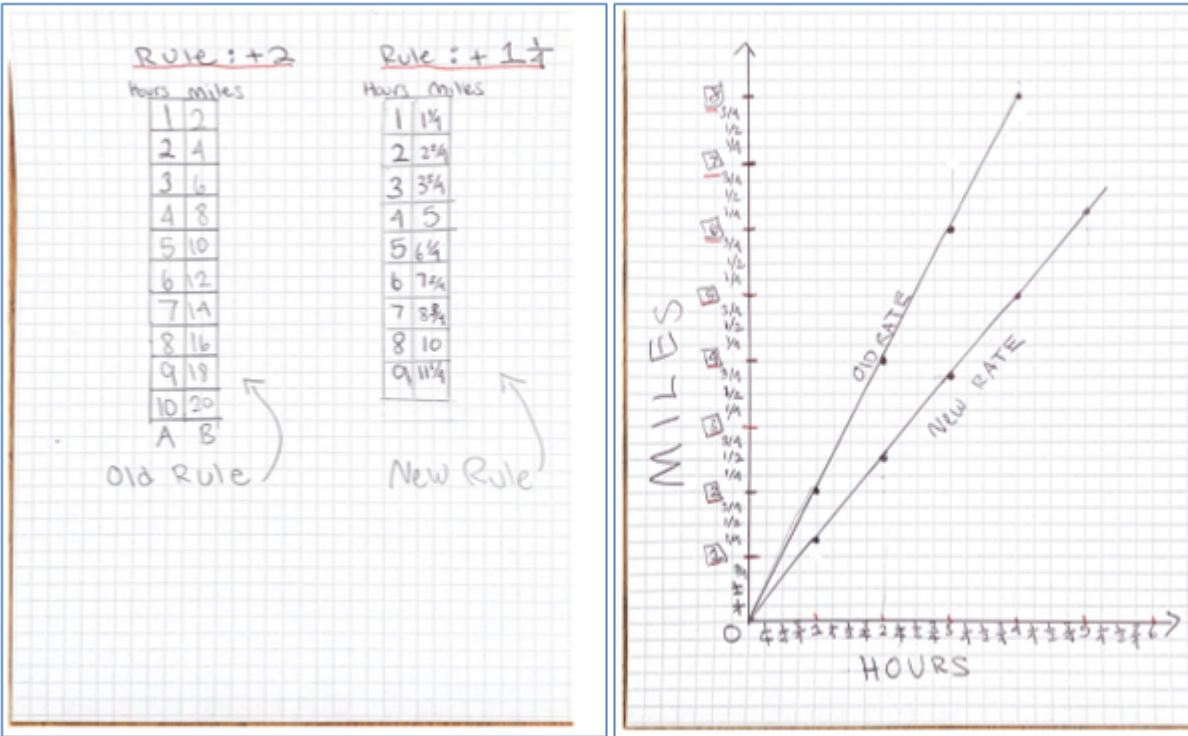 Rule : +2
Hours Miles
1 2
2 4
3 6
4 8
5 10
6 12
7 14
8 16
9 18
10 20
A B
Old Rule
Rule : + 1 1/4
Hours Miles
1 1 1/4
2 2 2/4
3 3 3/4
4 5
5 6 1/4
6 7 2/4
7 8 3/4
8 10
9 11 1/4
New Rule
MILES
8
3/4
1/2
1/4
7
3/4
1/2
1/4
6
3/4
1/2
1/4
5
3/4
1/2
1/4
4
3/4
1/2
1/4
3
3/4
1/2
1/4
2
3/4
1/2
1/4
1
OLD RATE
NEW RATE
0 1/4 1/2 3/4 1 1/4 1/2 3/4 2 1/4 1/2 3/4 3 1/4 1/2 3/4 4 1/4 1/2 3/4 5 1/4 1/2 3/4 6
HOURS